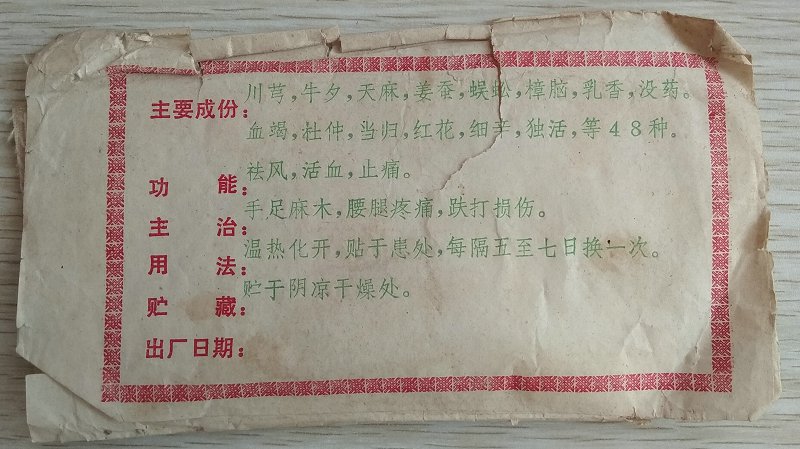 主要成份：川芎，牛夕，天麻，姜蚕，蜈蚣，樟脑，乳香，没药。
血竭，杜仲，当归，红花，细辛，独活，等48种。
功能：祛风，活血，止痛。
主治：手足麻木，腰腿疼痛，跌打损伤。
用法：温热化开，贴于患处，每隔五至七日换一次。
贮藏：贮于阴凉干燥处。
出厂日期：